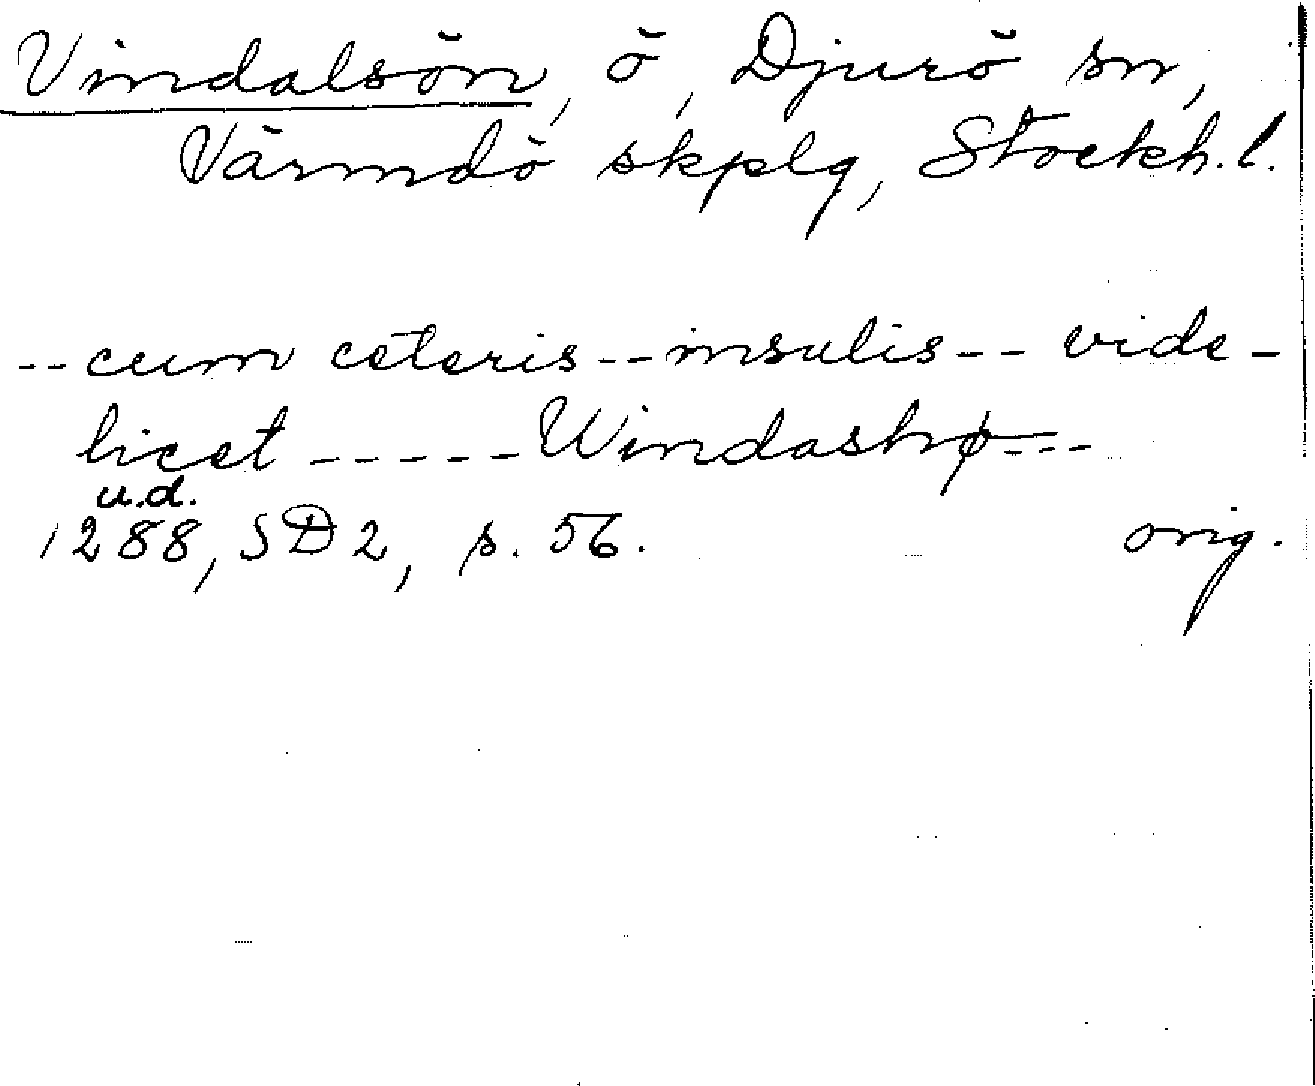 Vindalsön, ö, Djurö sn,
Värmdö skplg, Stockh. l.
-- cum ceteris -- insulis -- vide-
licet ----- Windashø ---
u.d.
1288, SD 2, s. 56. orig.